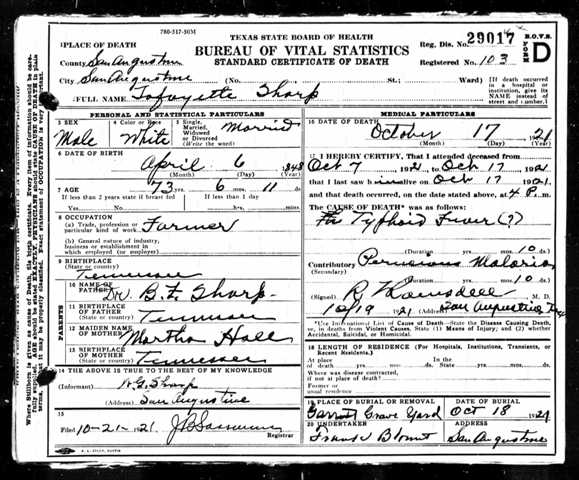 780-317-50M
TEXAS STATE BOARD OF HEALTH
BUREAU OF VITAL STATISTICS
STANDARD CERTIFICATE OF DEATH
Reg. Dis. No. 29017
Registered No. 103
B.O.V.S.
FORM D
PLACE OF DEATH
County San Augustine
City San Augustine (No. St.; Ward)
If death occurred in a hospital or institution, give its NAME instead of street and number.
FULL NAME Lafayette Sharp
PERSONAL AND STATISTICAL PARTICULARS
3 SEX Male
4 Color or Race White
5 Single, Married, Widowed or Divorced (Write the word) Married
6 DATE OF BIRTH
April 6 1848
(Month) (Day) (Year)
7 AGE 73 yrs. 6 mos. 11 ds.
If less than 2 years state if breast fed If less than 1 day
Yes No hrs. min.
8 OCCUPATION
(a) Trade, profession or particular kind of work Farmer
(b) General nature of industry, business or establishment in which employed (or employer)
9 BIRTHPLACE
(State or country) Tennessee
PARENTS
10 NAME OF FATHER Dr. B. F. Sharp
11 BIRTHPLACE OF FATHER (State or country) Tennessee
12 MAIDEN NAME OF MOTHER Martha Hall
13 BIRTHPLACE OF MOTHER (State or country) Tennessee
14 THE ABOVE IS TRUE TO THE BEST OF MY KNOWLEDGE
(Informant) Sharp
(Address) San Augustine
15
Filed 10-21-1921
Registrar
MEDICAL PARTICULARS
16 DATE OF DEATH
October 17 1921
(Month) (Day) (Year)
17 I HEREBY CERTIFY, That I attended deceased from
Oct 7 1921 to Oct 17 1921
that I last saw him alive on Oct 17 1921
and that death occurred, on the date stated above, at 4 P. m.
The CAUSE OF DEATH* was as follows:
Typhoid Fever (?)
(Duration) 10 ds.
Contributory Pernicious Malaria
(Secondary)
(Duration) mos. 10 ds.
(Signed) M. D.
10/19 1921 (Address) San Augustine Tex
*Use International List of Cause of Death—State the Disease Causing Death, or, in deaths from Violent Causes, State (1) Means of Injury; and (2) whether Accidental, Suicidal, or Homicidal.
18 LENGTH OF RESIDENCE (For Hospitals, Institutions, Transients, or Recent Residents.)
At place of death yrs. mos. ds. In the State yrs. mos. ds.
Where was disease contracted, if not at place of death?
Former or usual residence
19 PLACE OF BURIAL OR REMOVAL DATE OF BURIAL
Garrett Grave Yard Oct 18 1921
20 UNDERTAKER ADDRESS
Frank Blount San Augustine